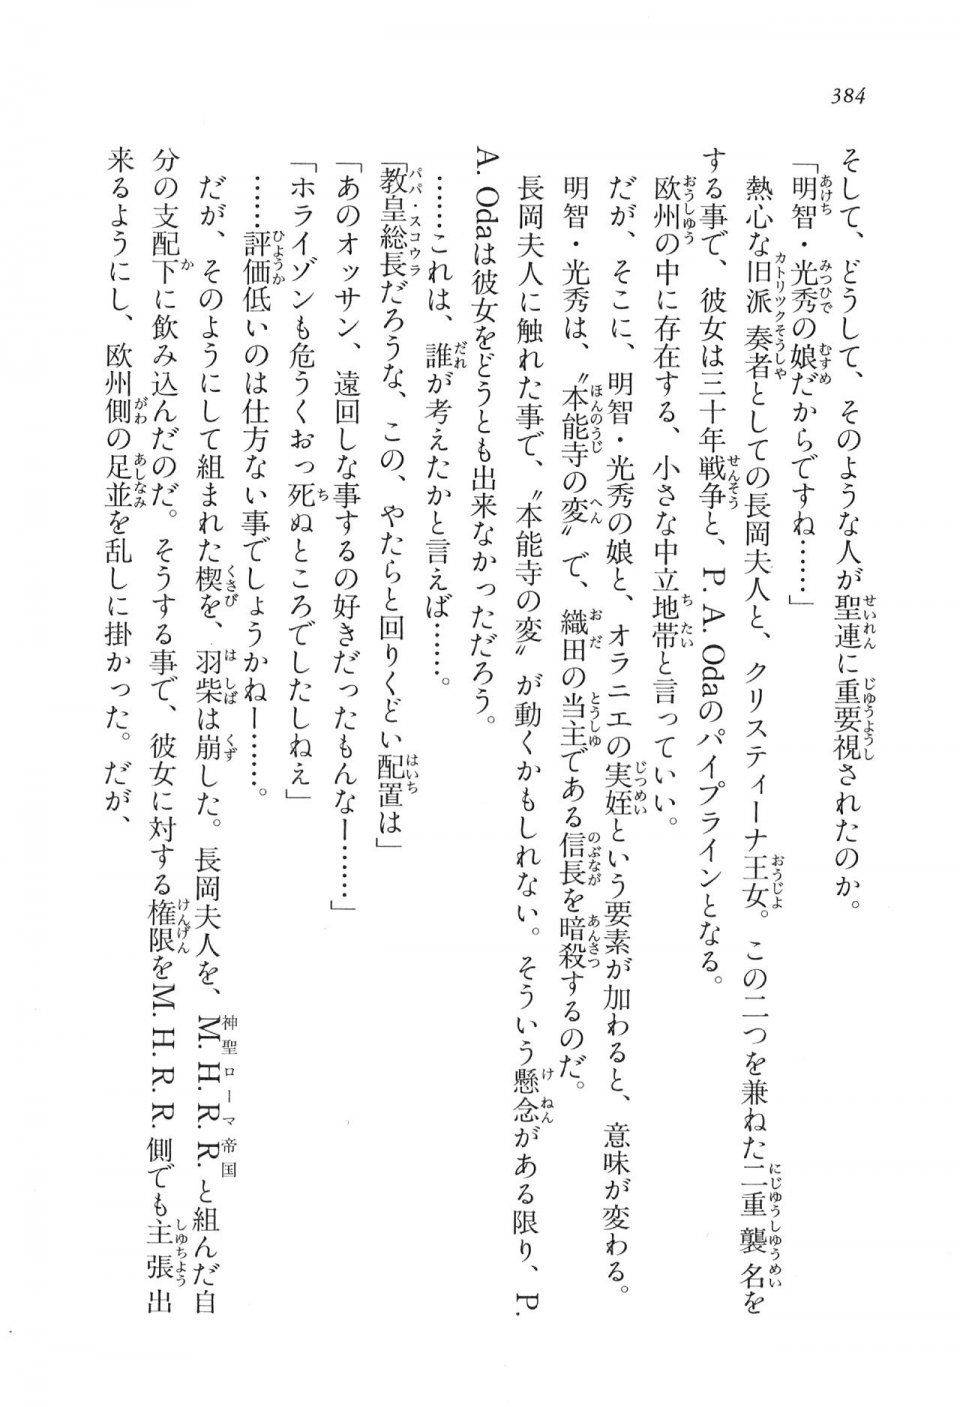 384
そして、どうして、そのような人が聖連に重要視されたのか。
「明智・光秀の娘だからですね……」
熱心な旧派奏者としての長岡夫人と、クリスティーナ王女。この二つを兼ねた二重襲名を
する事で、彼女は三十年戦争と、P. A. Odaのパイプラインとなる。
欧州の中に存在する、小さな中立地帯と言っていい。
だが、そこに、明智・光秀の娘と、オラニエの実姪という要素が加わると、意味が変わる。
明智・光秀は、〝本能寺の変〟で、織田の当主である信長を暗殺するのだ。
長岡夫人に触れた事で、〝本能寺の変〟が動くかもしれない。そういう懸念がある限り、P.
A. Odaは彼女をどうとも出来なかっただろう。
……これは、誰が考えたかと言えば……。
「教皇総長だろうな、この、やたらと回りくどい配置は」
「あのオッサン、遠回しな事するの好きだったもんなー……」
「ホライゾンも危うくおっ死ぬところでしたしねえ」
……評価低いのは仕方ない事でしょうかねー……。
だが、そのようにして組まれた楔を、羽柴は崩した。長岡夫人を、M. H. R. R.と組んだ自
分の支配下に飲み込んだのだ。そうする事で、彼女に対する権限をM. H. R. R.側でも主張出
来るようにし、欧州側の足並を乱しに掛かった。だが、